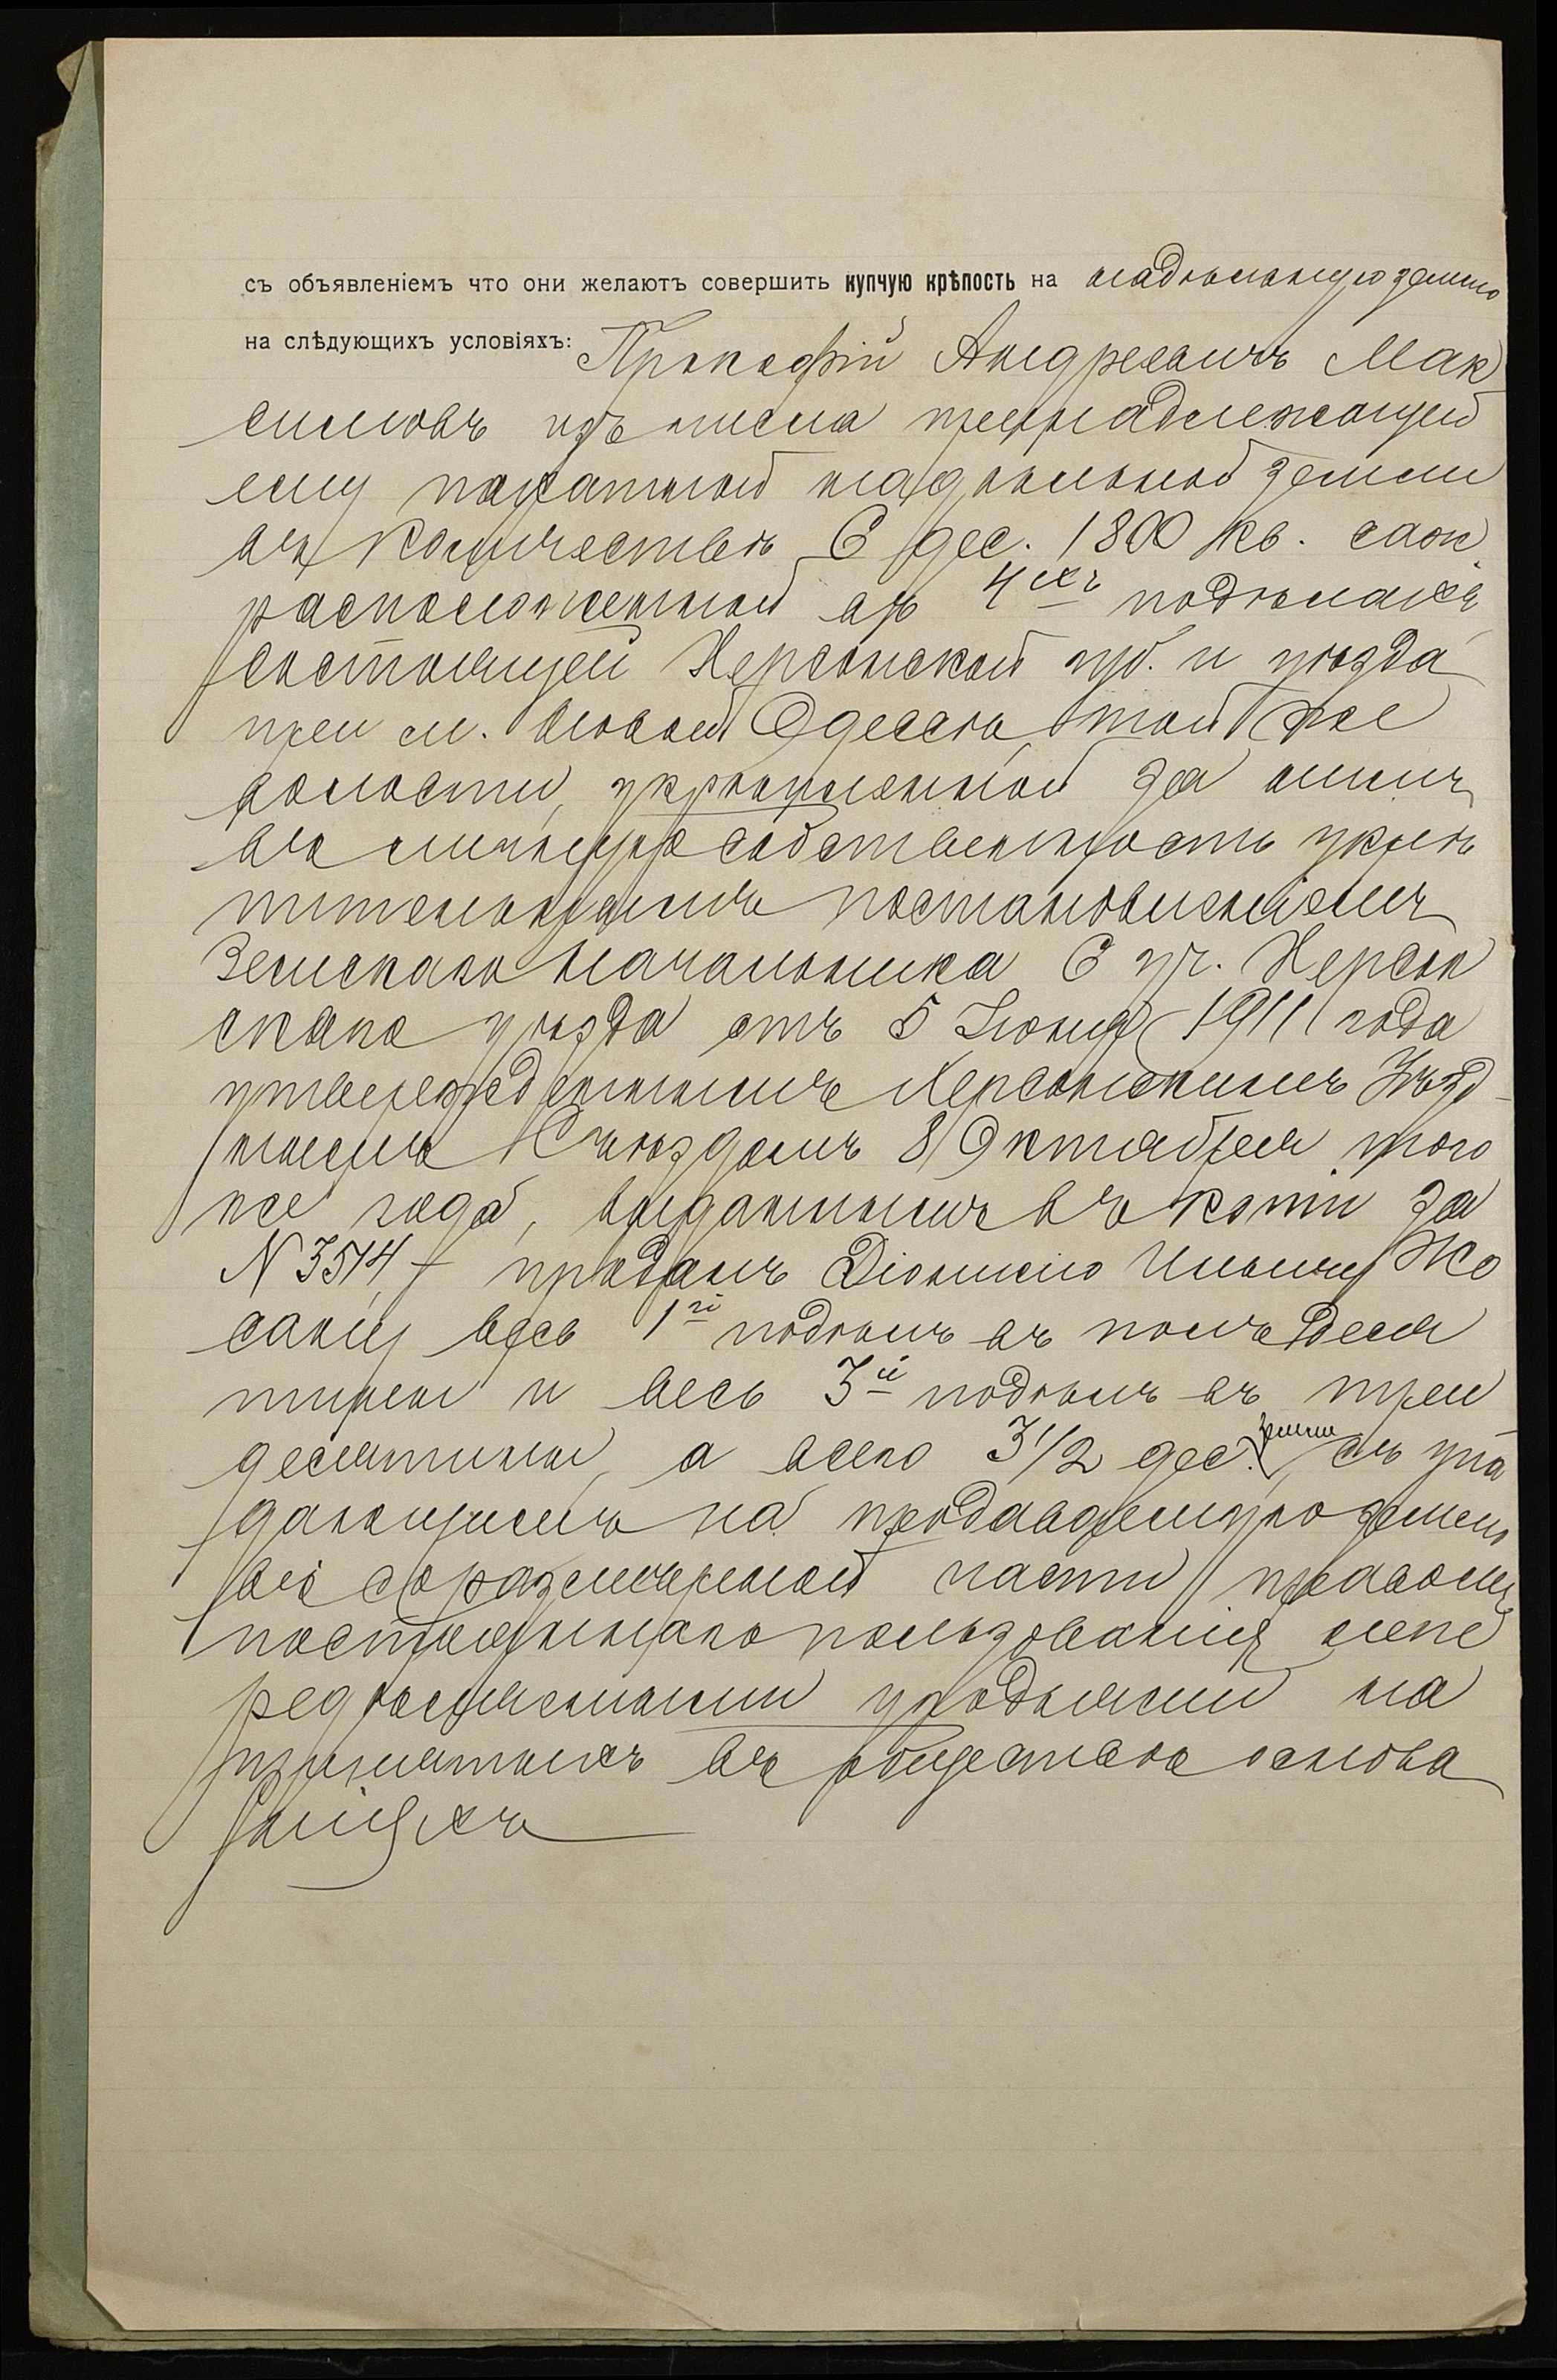 съ объявленіемъ что они желаютъ совершить купчую крѣпость на надѣльную землю
на слѣдующихъ условіяхъ: Прокофій Андреевичъ Мак
симовъ изъ числа принадлежащей
ему пахатной надѣльной земли
въ количествѣ 6 дес. 1800 кв. саж.
расположенной въ 4хъ подѣлахъ
состоящей Херсонской губ. и уѣзда
при м. Новой Одессѣ, той же
волости, укрѣпленной за нимъ
въ личную собственность укрѣ
пительнымъ постановленіемъ
Земскаго Начальника 6 уч. Херсон
скаго уѣзда отъ 5 Іюня 1911 года
утвержденнымъ Херсонскимъ Уѣзд-
нымъ Съѣздомъ 8 Октября того
же года, выданнымъ въ копіи за
N 3514, – продалъ Діонисію Ильичу Жо
сану весь 1й подѣлъ въ полъ деся
тины и весь 3й подѣлъ въ три
десятины, а всего 3 1/2 дес. земли, съ упа
дающимъ на продаваемую землю
въ соразмѣрной части правомъ
постояннаго пользованія непе
редѣляемыми угодьями на
принятыхъ въ обществѣ основа
ніяхъ